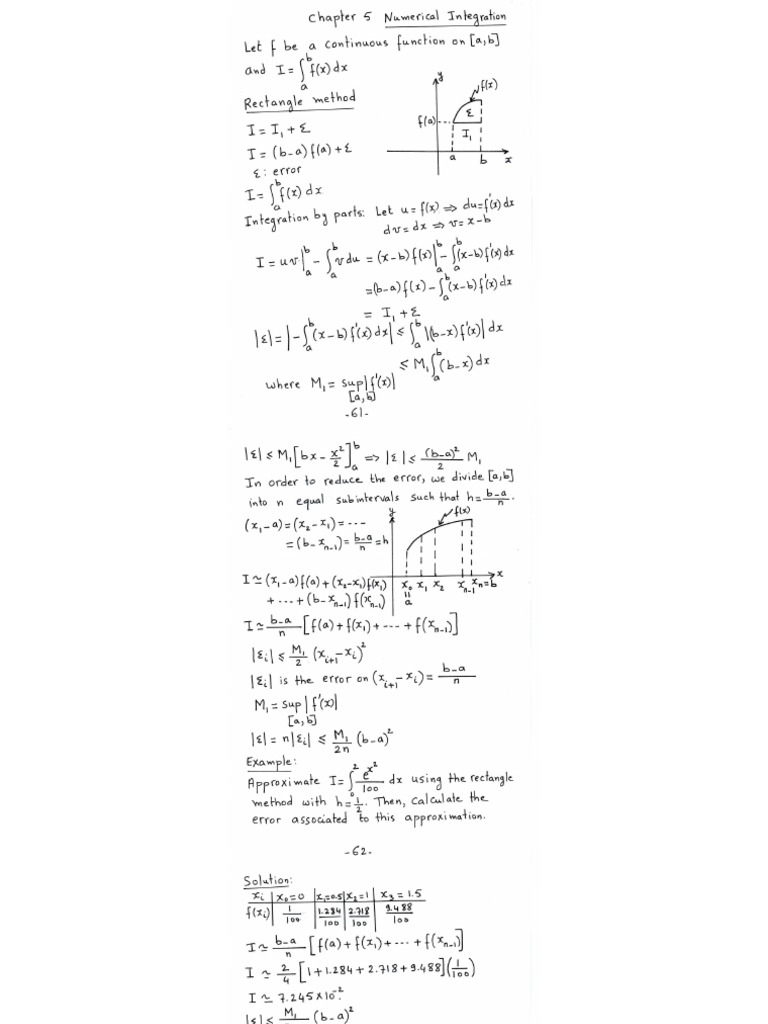 Chapter 5 Numerical Integration
Let f be a continuous function on [a,b]
and I = ∫_a^b f(x) dx
Rectangle method
I = I₁ + ε
I = (b-a) f(a) + ε
ε: error
I = ∫_a^b f(x) dx
y
f(x)
f(a)
ε
I₁
a b x
Integration by parts: Let u = f(x) ⇒ du = f'(x) dx
dv = dx ⇒ v = x-b
I = uv|_a^b - ∫_a^b v du = (x-b) f(x)|_a^b - ∫_a^b (x-b) f'(x) dx
= (b-a) f(x) - ∫_a^b (x-b) f'(x) dx
= I₁ + ε
|ε| = |-∫_a^b (x-b) f'(x) dx| ≤ ∫_a^b |(b-x) f'(x)| dx
≤ M₁ ∫_a^b (b-x) dx
where M₁ = sup |f'(x)|
[a,b]
-61-
|ε| ≤ M₁ [bx - x²/2]_a^b ⇒ |ε| ≤ (b-a)²/2 M₁
In order to reduce the error, we divide [a,b]
into n equal subintervals such that h = b-a/n.
(x₁-a) = (x₂-x₁) = ---
= (b-x_{n-1}) = b-a/n = h
y
f(x)
x₀ x₁ x₂ x_{n-1} x_n=b x
=
a
I ≃ (x₁-a) f(a) + (x₂-x₁) f(x₁)
+ ... + (b-x_{n-1}) f(x_{n-1})
I ≃ b-a/n [f(a) + f(x₁) + --- + f(x_{n-1})]
|ε_i| ≤ M₁/2 (x_{i+1}-x_i)²
|ε_i| is the error on (x_{i+1}-x_i) = b-a/n
M₁ = sup |f'(x)|
[a,b]
|ε| = n|ε_i| ≤ M₁/2n (b-a)²
Example:
Approximate I = ∫_0^2 e^{x²}/100 dx using the rectangle
method with h = 1/2. Then, calculate the
error associated to this approximation.
-62-
Solution:
x_i x₀=0 x₁=0.5 x₂=1 x₃=1.5
f(x_i) 1/100 1.284/100 2.718/100 9.488/100
I ≃ b-a/n [f(a) + f(x₁) + --- + f(x_{n-1})]
I ≃ 2/4 [1+1.284+2.718+9.488] (1/100)
I ≃ 7.245×10⁻².
|ε| ≤ M₁ (b-a)²